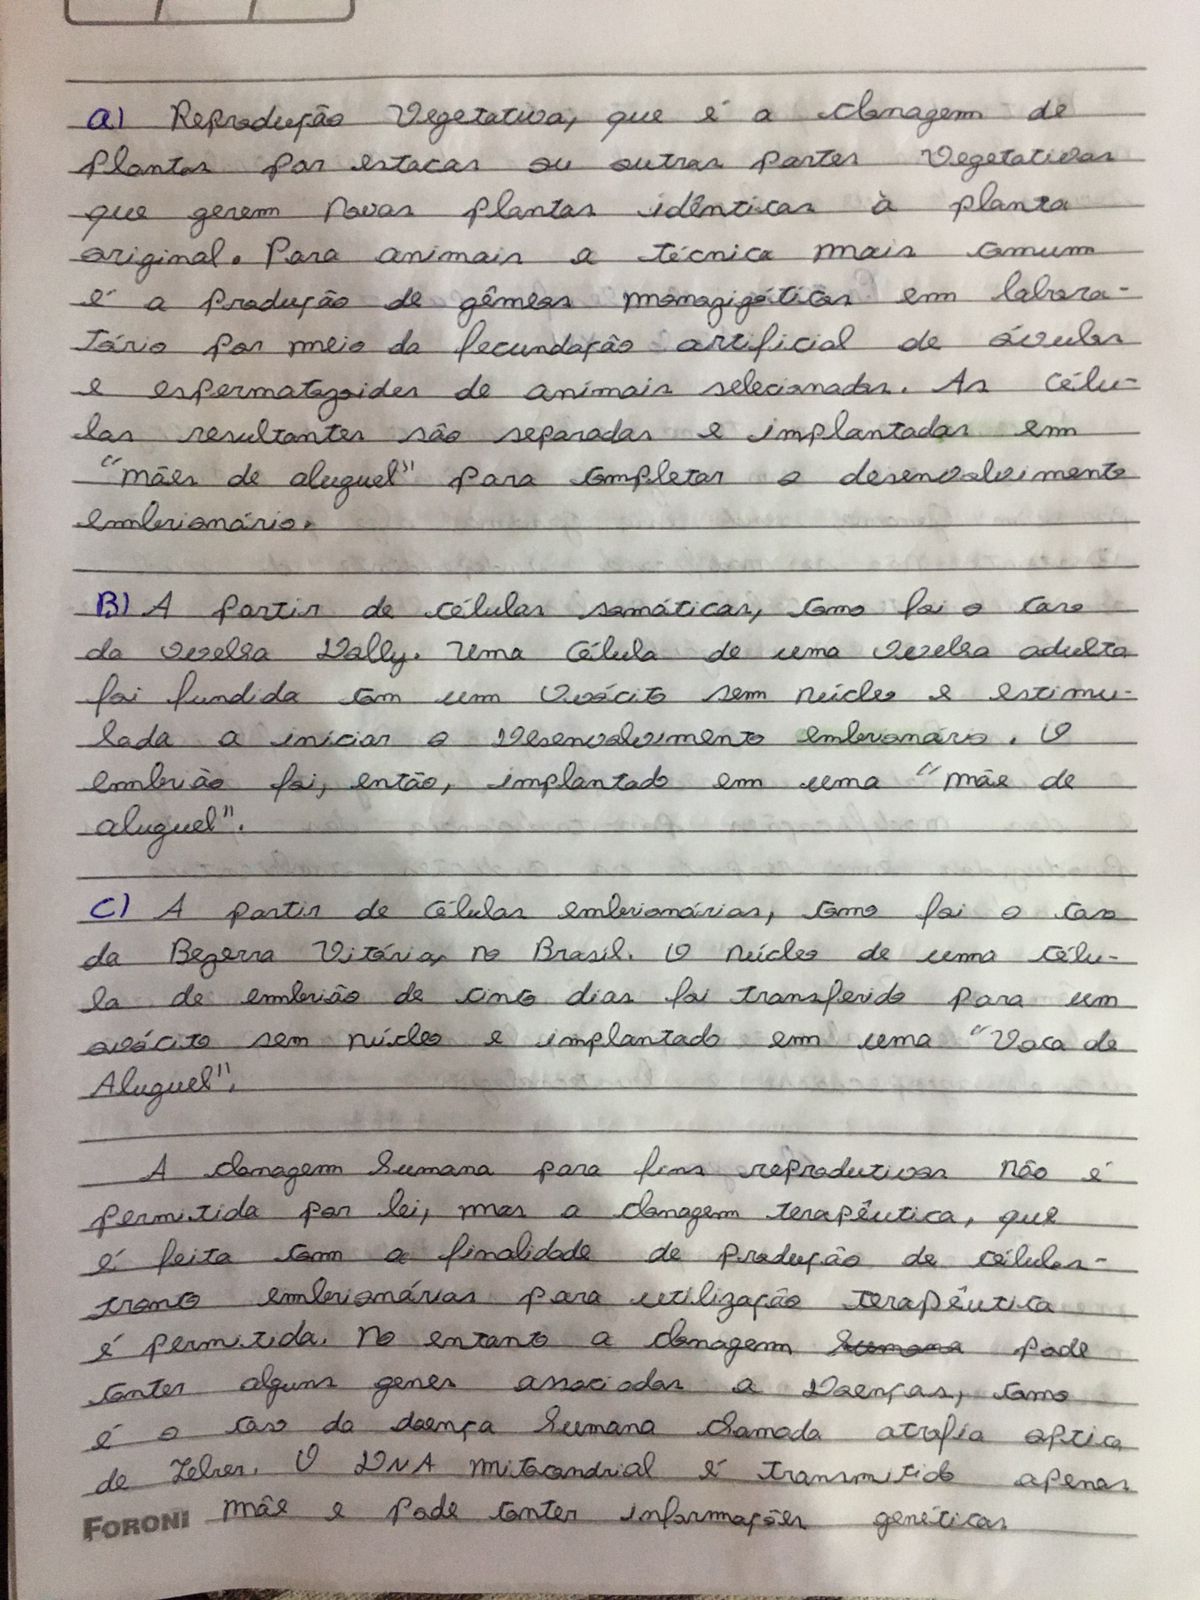 a) Reprodução Vegetativa, que é a clonagem de
plantas por estacas ou outras partes vegetativas
que gerem novas plantas idênticas à planta
original. Para animais a técnica mais comum
é a produção de gêmeos monozigóticos em labora-
tório por meio da fecundação artificial de óvulos
e espermatozoides de animais selecionados. As célu-
las resultantes são separadas e implantadas em
"mães de aluguel" para completar o desenvolvimento
embrionário.
B) A partir de células somáticas, como foi o caso
da ovelha Dolly. Uma célula de uma ovelha adulta
foi fundida com um ovócito sem núcleo e estimu-
lada a iniciar o desenvolvimento embrionário. O
embrião foi, então, implantado em uma "mãe de
aluguel".
C) A partir de células embrionárias, como foi o caso
da Bezerra Vitória, no Brasil. O núcleo de uma célu-
la de embrião de cinco dias foi transferido para um
ovócito sem núcleo e implantado em uma "Vaca de
Aluguel".
A clonagem humana para fins reprodutivos não é
permitida por lei, mas a clonagem terapêutica, que
é feita com a finalidade de produção de células-
tronco embrionárias para utilização terapêutica
é permitida. No entanto a clonagem humana pode
conter alguns genes associados a doenças, como
é o caso da doença humana chamada atrofia optica
de Leber. O DNA mitocondrial é transmitido apenas
FORONI mãe e pode conter informações genéticas